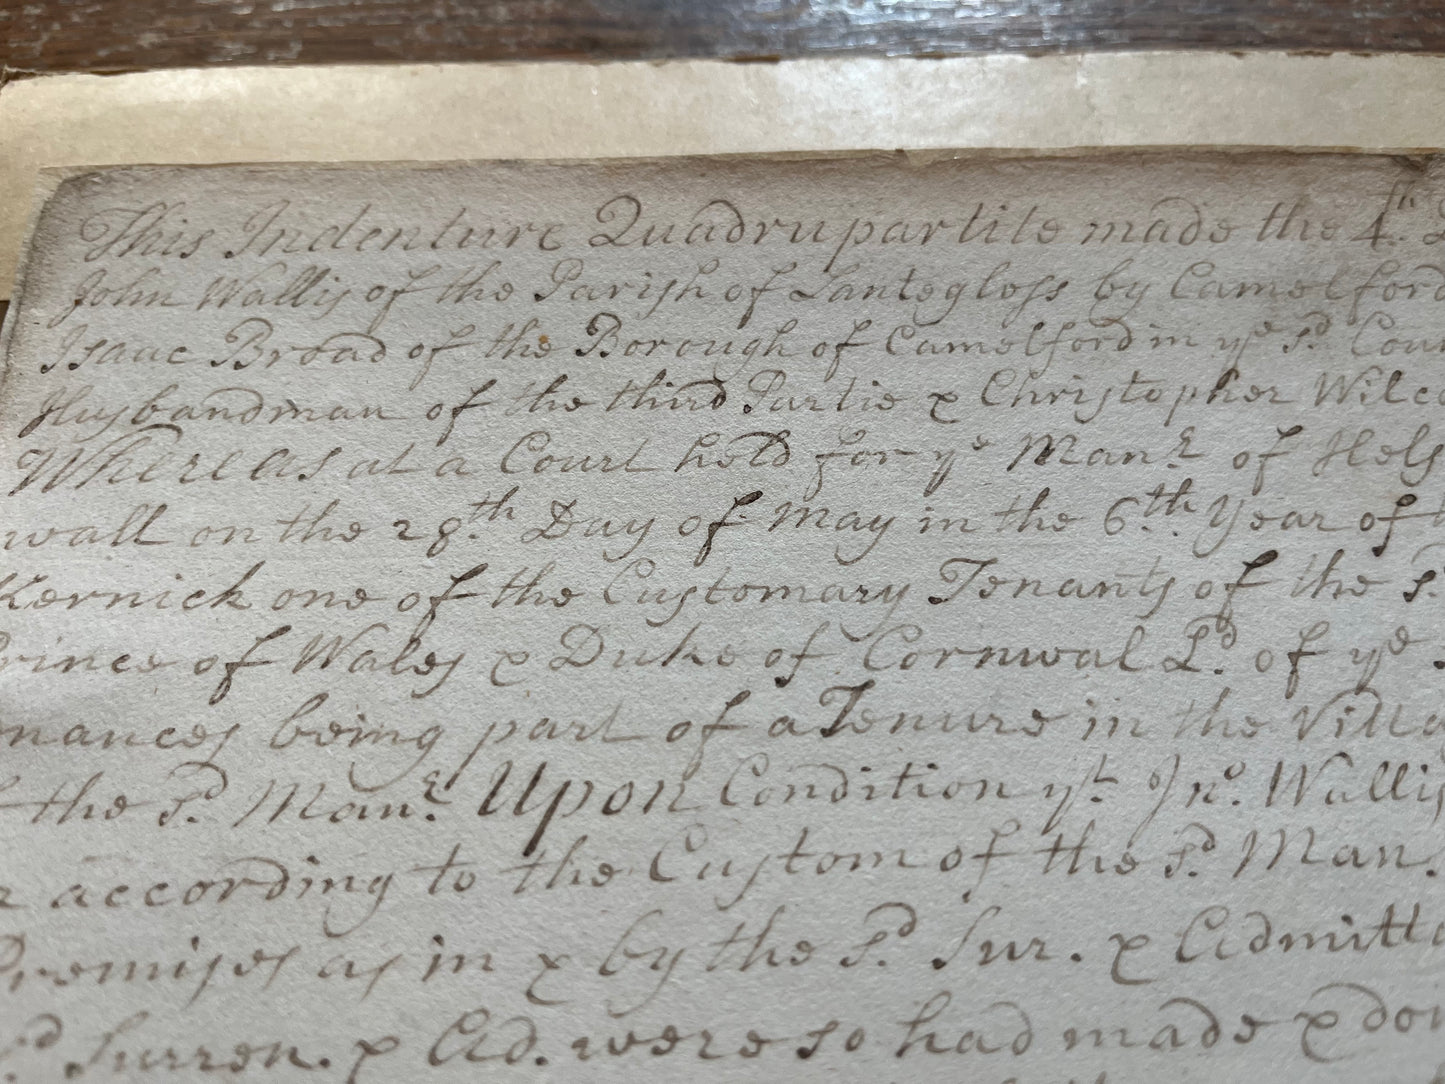 This Indenture Quadrupartite made the 4th.
John Wallis of the Parish of Lantegloss by Camelford
Isaac Broad of the Borough of Camelford in ye sd. Coun
Husbandman of the third Partie & Christopher Wilco
Whereas at a Court held for ye Manr. of Hels
wall on the 28th. Day of May in the 6th. Year of
Kernick one of the Customary Tenants of the sd.
Prince of Wales & Duke of Cornwal Ld. of ye
nances being part of a Tenure in the Villa
the sd. Manr. Upon Condition yt. Jno. Wallis
according to the Custom of the sd. Man.
Premises as in & by the sd. Sur. & Admitta
sd. Surren. & Ad. were so had made & don